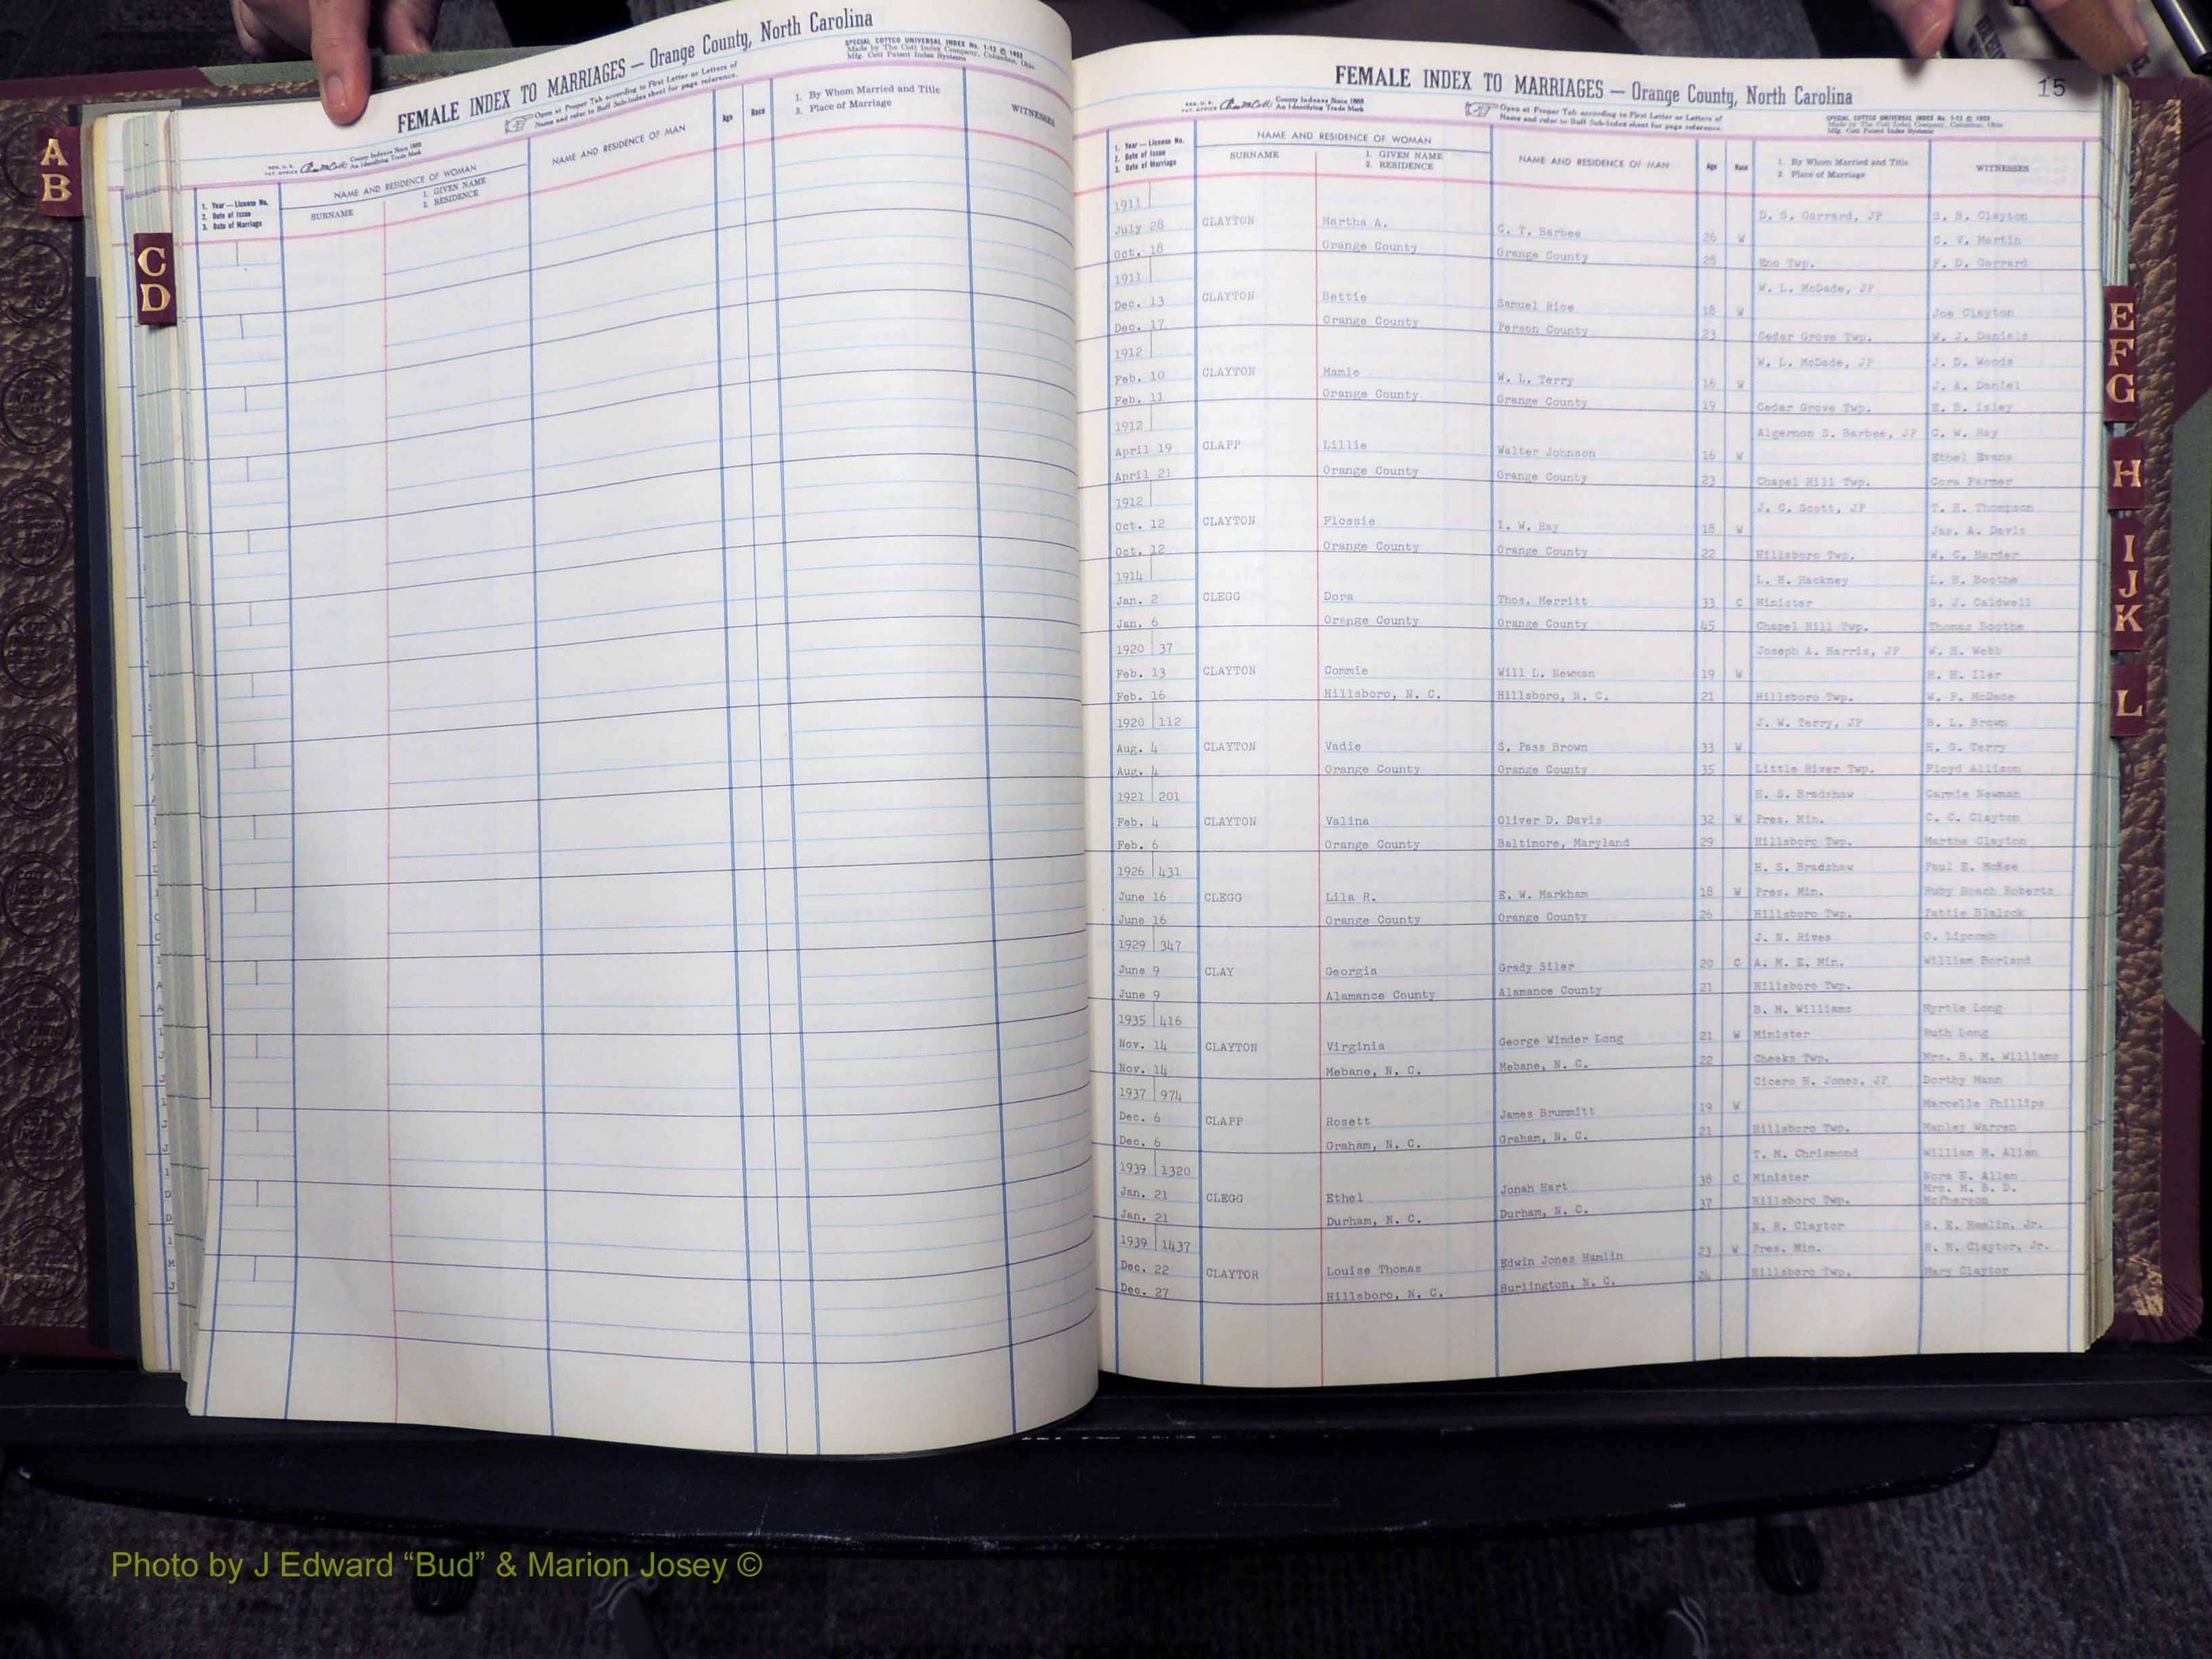 A
B
C
D
FEMALE INDEX TO MARRIAGES — Orange County, North Carolina
SPECIAL COTTCO UNIVERSAL INDEX No. 1-12 © 1953
Made by The Cott Index Company, Columbus, Ohio
Mfg. Cott Patent Index Systems
County Indexes Since 1888
An Identifying Trade Mark
Open at Proper Tab according to First Letter or Letters of
Name and refer to Buff Sub-Index sheet for page reference.
1. Year — License No.
2. Date of Issue
3. Date of Marriage
NAME AND RESIDENCE OF WOMAN
SURNAME
1. GIVEN NAME
2. RESIDENCE
NAME AND RESIDENCE OF MAN
Age
Race
1. By Whom Married and Title
2. Place of Marriage
WITNESSES
FEMALE INDEX TO MARRIAGES — Orange County, North Carolina
15
County Indexes Since 1888
An Identifying Trade Mark
Open at Proper Tab according to First Letter or Letters of
Name and refer to Buff Sub-Index sheet for page reference.
SPECIAL COTTCO UNIVERSAL INDEX No. 1-12 © 1953
Made by The Cott Index Company, Columbus, Ohio
Mfg. Cott Patent Index Systems
1. Year — License No.
2. Date of Issue
3. Date of Marriage
NAME AND RESIDENCE OF WOMAN
SURNAME
1. GIVEN NAME
2. RESIDENCE
NAME AND RESIDENCE OF MAN
Age
Race
1. By Whom Married and Title
2. Place of Marriage
WITNESSES
1911 D. S. Garrard, JP S. B. Clayton
July 28 CLAYTON Martha A. C. T. Barbee 26 W C. V. Martin
Oct. 18 Orange County Orange County 28 Eno Twp. F. D. Garrard
1911 W. L. McDade, JP
Dec. 13 CLAYTON Bettie Samuel Rice 18 W Joe Clayton
Dec. 17 Orange County Person County 23 Cedar Grove Twp. W. J. Daniels
1912 W. L. McDade, JP J. D. Woods
Feb. 10 CLAYTON Mamie W. L. Terry 16 W J. A. Daniel
Feb. 11 Orange County Orange County 19 Cedar Grove Twp. E. E. Isley
1912 Algernon S. Barbee, JP C. W. Ray
April 19 CLAPP Lillie Walter Johnson 16 W Ethel Evans
April 21 Orange County Orange County 23 Chapel Hill Twp. Cora Farmer
1912 J. C. Scott, JP T. H. Thompson
Oct. 12 CLAYTON Flossie I. W. Ray 18 W Jas. A. Davis
Oct. 12 Orange County Orange County 22 Hillsboro Twp. W. C. Harder
1914 L. H. Hackney L. B. Boothe
Jan. 2 CLEGG Dora Thos. Merritt 33 C Minister S. J. Caldwell
Jan. 6 Orange County Orange County 45 Chapel Hill Twp. Thomas Boothe
1920 37 Joseph A. Harris, JP W. H. Webb
Feb. 13 CLAYTON Commie Will L. Newman 19 W H. H. Iler
Feb. 16 Hillsboro, N. C. Hillsboro, N. C. 21 Hillsboro Twp. W. F. McDade
1920 112 J. W. Terry, JP B. L. Brown
Aug. 4 CLAYTON Vadie S. Pass Brown 33 W H. G. Terry
Aug. 4 Orange County Orange County 35 Little River Twp. Floyd Allison
1921 201 H. S. Bradshaw Carrie Newman
Feb. 4 CLAYTON Valina Oliver D. Davis 32 W Pres. Min. C. C. Clayton
Feb. 6 Orange County Baltimore, Maryland 29 Hillsboro Twp. Martha Clayton
1926 431 H. S. Bradshaw Paul E. McKee
June 16 CLEGG Lila R. E. W. Markham 18 W Pres. Min. Ruby Roach Roberts
June 16 Orange County Orange County 26 Hillsboro Twp. Pattie Blalock
1929 347 J. N. Rives O. Lipcomb
June 9 CLAY Georgia Grady Siler 20 C A. M. E. Min. William Borland
June 9 Alamance County Alamance County 21 Hillsboro Twp.
1935 416 B. M. Williams Myrtle Long
Nov. 14 CLAYTON Virginia George Winder Long 21 W Minister Ruth Long
Nov. 14 Mebane, N. C. Mebane, N. C. 22 Cheeks Twp. Mrs. B. M. Williams
1937 974 Cicero H. Jones, JP Dorthy Mann
Dec. 6 CLAPP Rosett James Brummitt 19 W Marcelle Phillips
Dec. 6 Graham, N. C. Graham, N. C. 21 Hillsboro Twp. Manley Warren
1939 1320 T. M. Chrismond William M. Allen
Jan. 21 CLEGG Ethel Jonah Hart 38 C Minister Nora E. Allen
Mrs. M. B. D.
Jan. 21 Durham, N. C. Durham, N. C. 37 Hillsboro Twp. McPherson
1939 1437 N. R. Claytor R. E. Hamlin, Jr.
Dec. 22 CLAYTOR Louise Thomas Edwin Jones Hamlin 23 W Pres. Min. R. N. Claytor, Jr.
Dec. 27 Hillsboro, N. C. Burlington, N. C. 24 Hillsboro Twp. Mary Claytor
E
F
G
H
I
J
K
L
Photo by J Edward “Bud” & Marion Josey ©